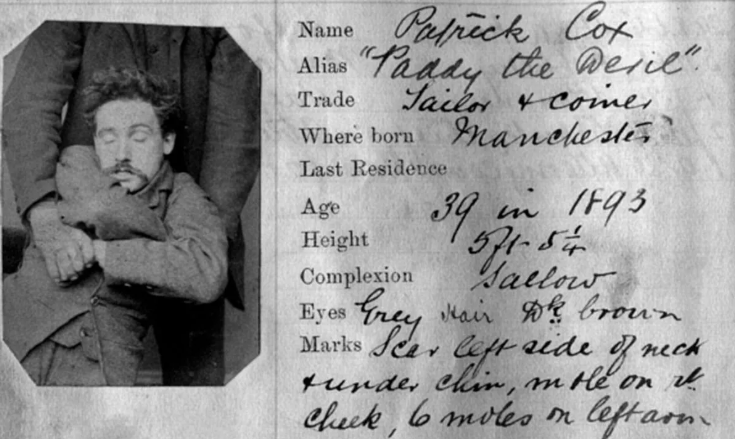 Name Patrick Cox
Alias "Paddy the Devil".
Trade Tailor & coiner
Where born Manchester
Last Residence
Age 39 in 1893
Height 5ft 5¼
Complexion Sallow
Eyes Grey Hair Dk brown
Marks Scar left side of neck
& under chin, mole on rt
cheek, 6 moles on left arm